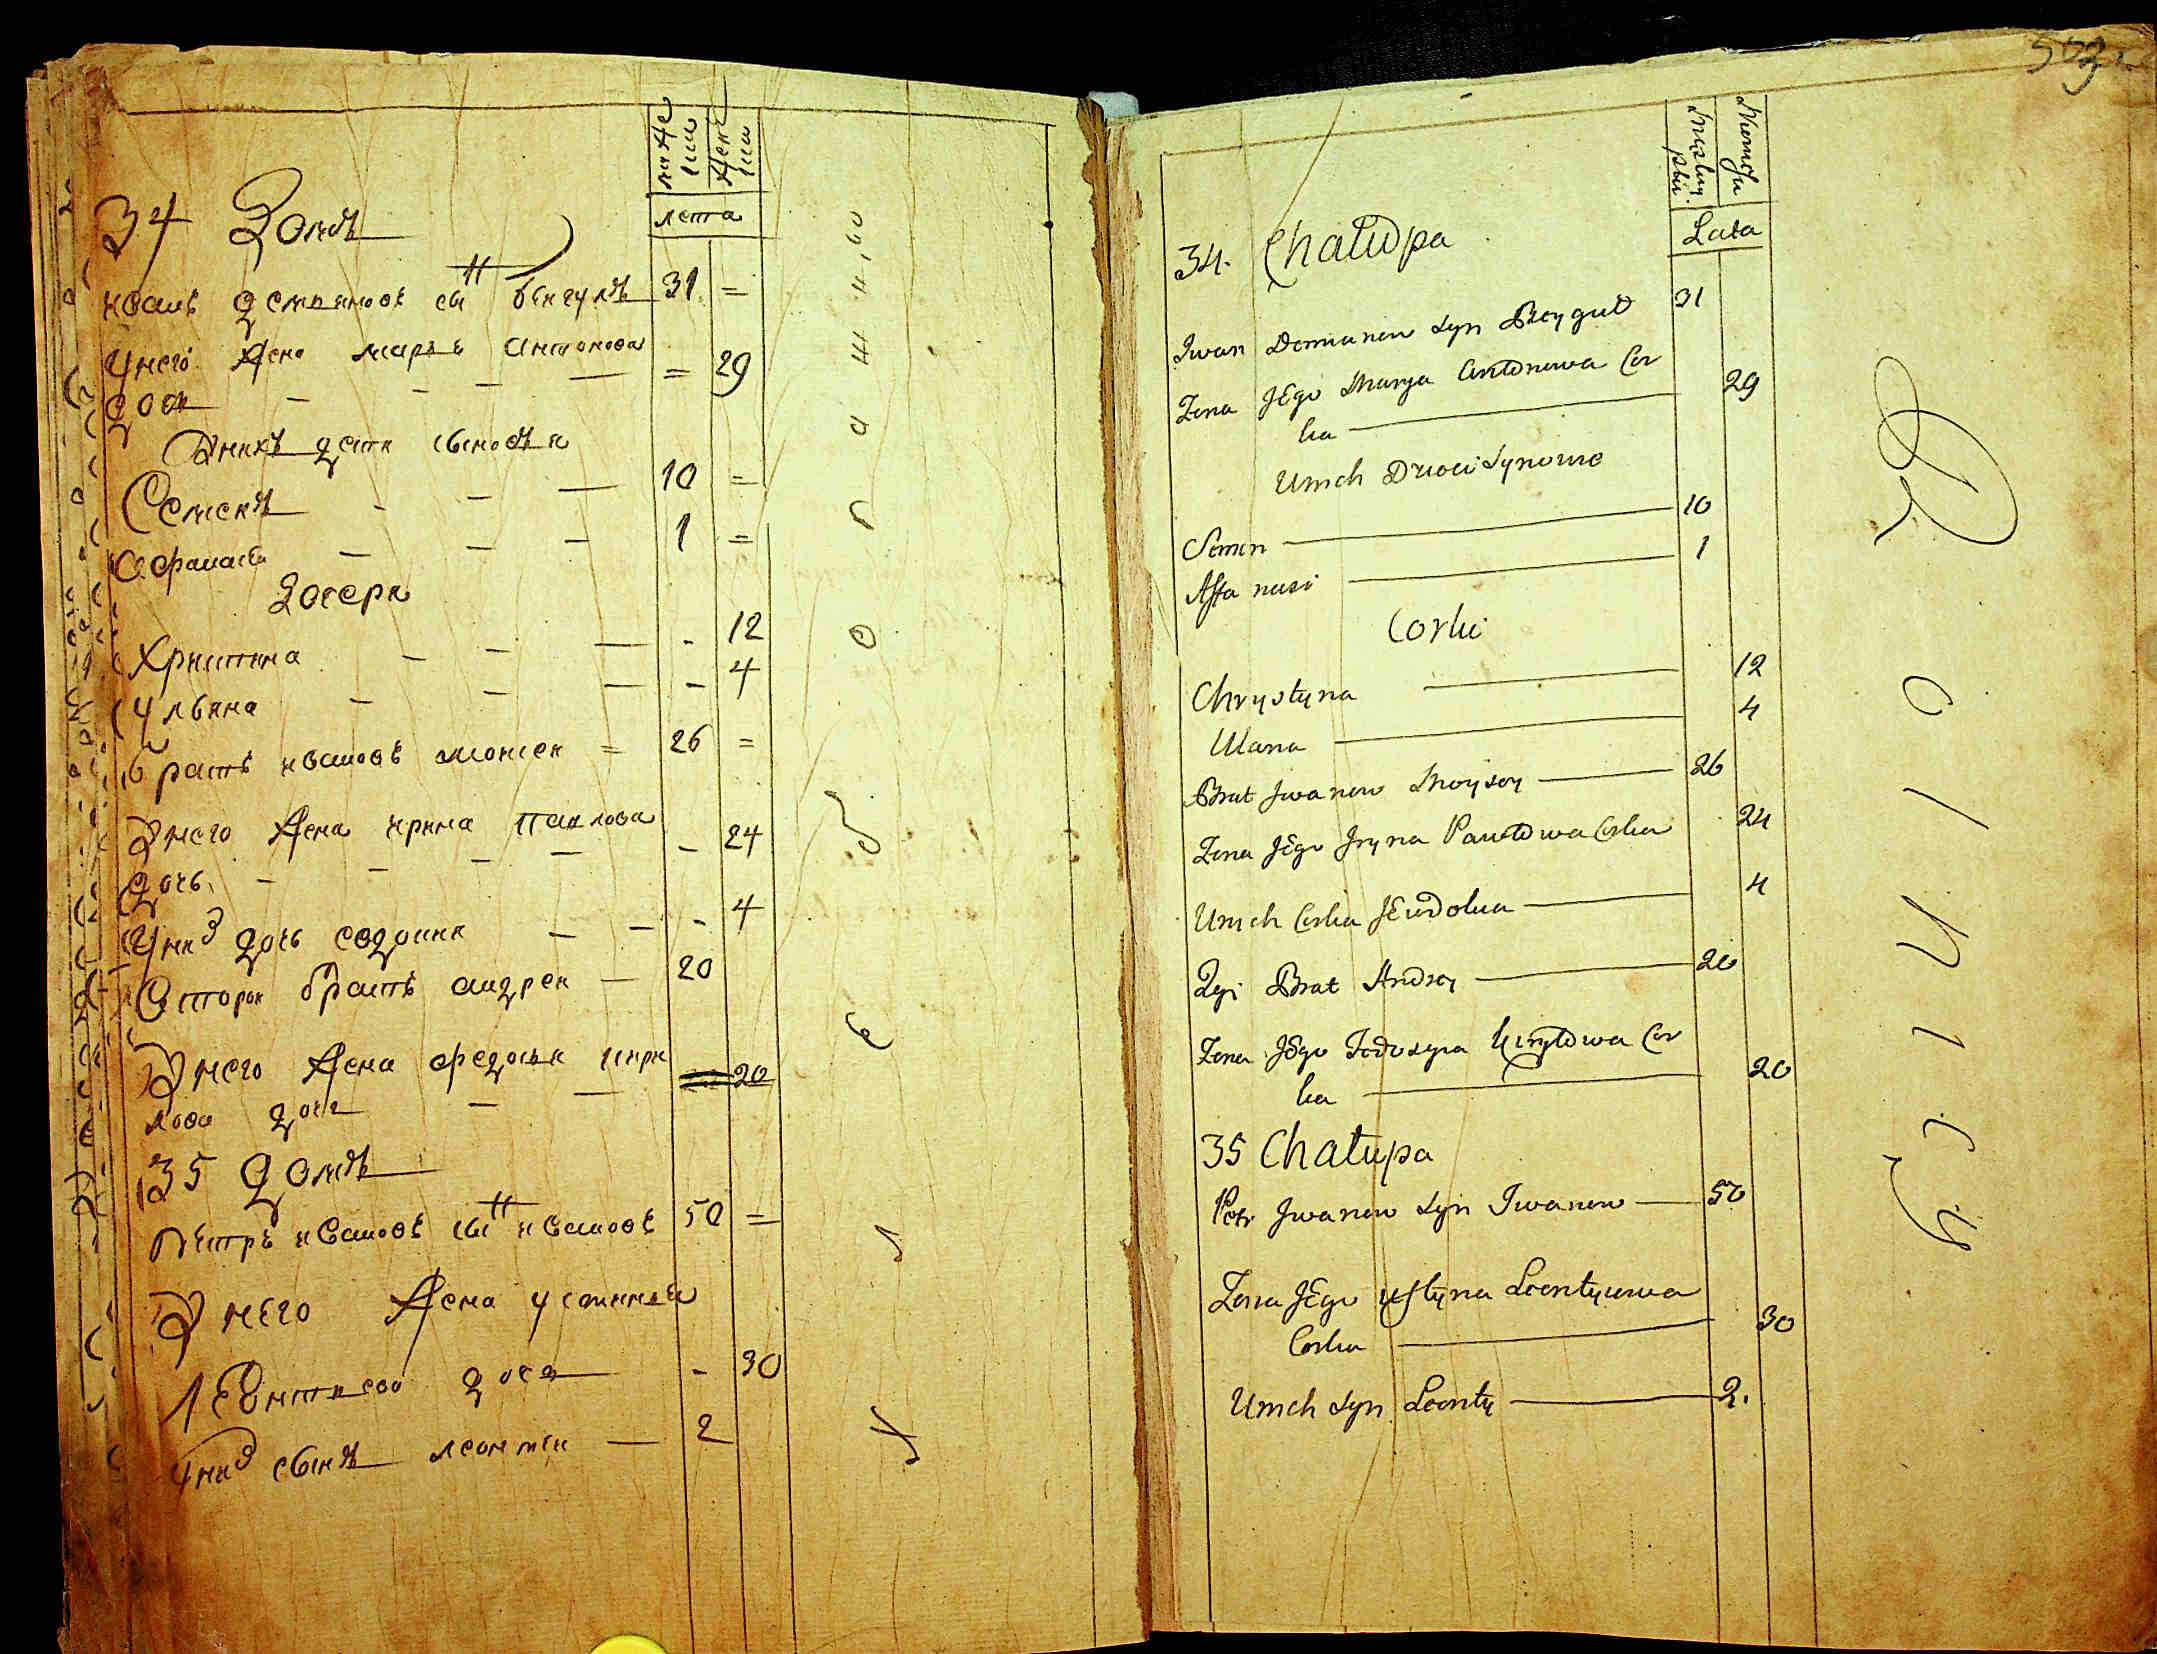 34 Домъ
муже
ска
жене
ска
лета
иванъ демяновъ сынъ бенгулъ 31 =
Унего жена маръя антонова
доч — — — = 29
Унихъ дети сыновъя
Семенъ - — — 10 =
Афанаси — — — 1 =
Дочери
Христина — — — - 12
Ульяна — — — - 4
братъ ивановъ моисеи = 26 =
Унего жена ирина павлова
дочь - - — — - 24
Уних дочь евдокия — — - 4
Второи братъ андреи — 20
Унего жена федосья кири
лова дочь — — 20
35 Домъ
Петръ ивановъ сынъ ивановъ 50 =
Унего жена устинья
Леонтиева дочь - 30
Уних сынъ леонтеи — 2
503
Męzkiy
Płci
Niewieściu
Lata
34. Chałupa
Jwan Demianow Syn Beygul 31
Zona JEgo Marya Antonowa Cor
ka 29
Unich Dzieci Synowie
Semen 10
Affanasi 1
Corki
Chrystyna 12
Ulana 4
Brat Jwanow Moysey 26
Zona JEgo Jryna Pawłowa Corka 24
Unich Corka JEwdokia 4
2gi Brat Andrey 20
Zona JEgo Fedosyia Kiryłowa Cor
ka 20
35 Chałupa
Piotr Jwanow Syn Jwanow 50
Zona JEgo Ustyna Leontyiewa
Corka 30
Unich Syn Leonty 2.